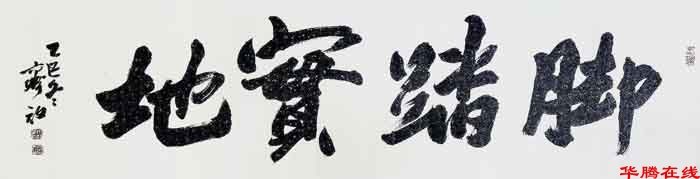 脚踏實地
乙巳冬
华腾在线